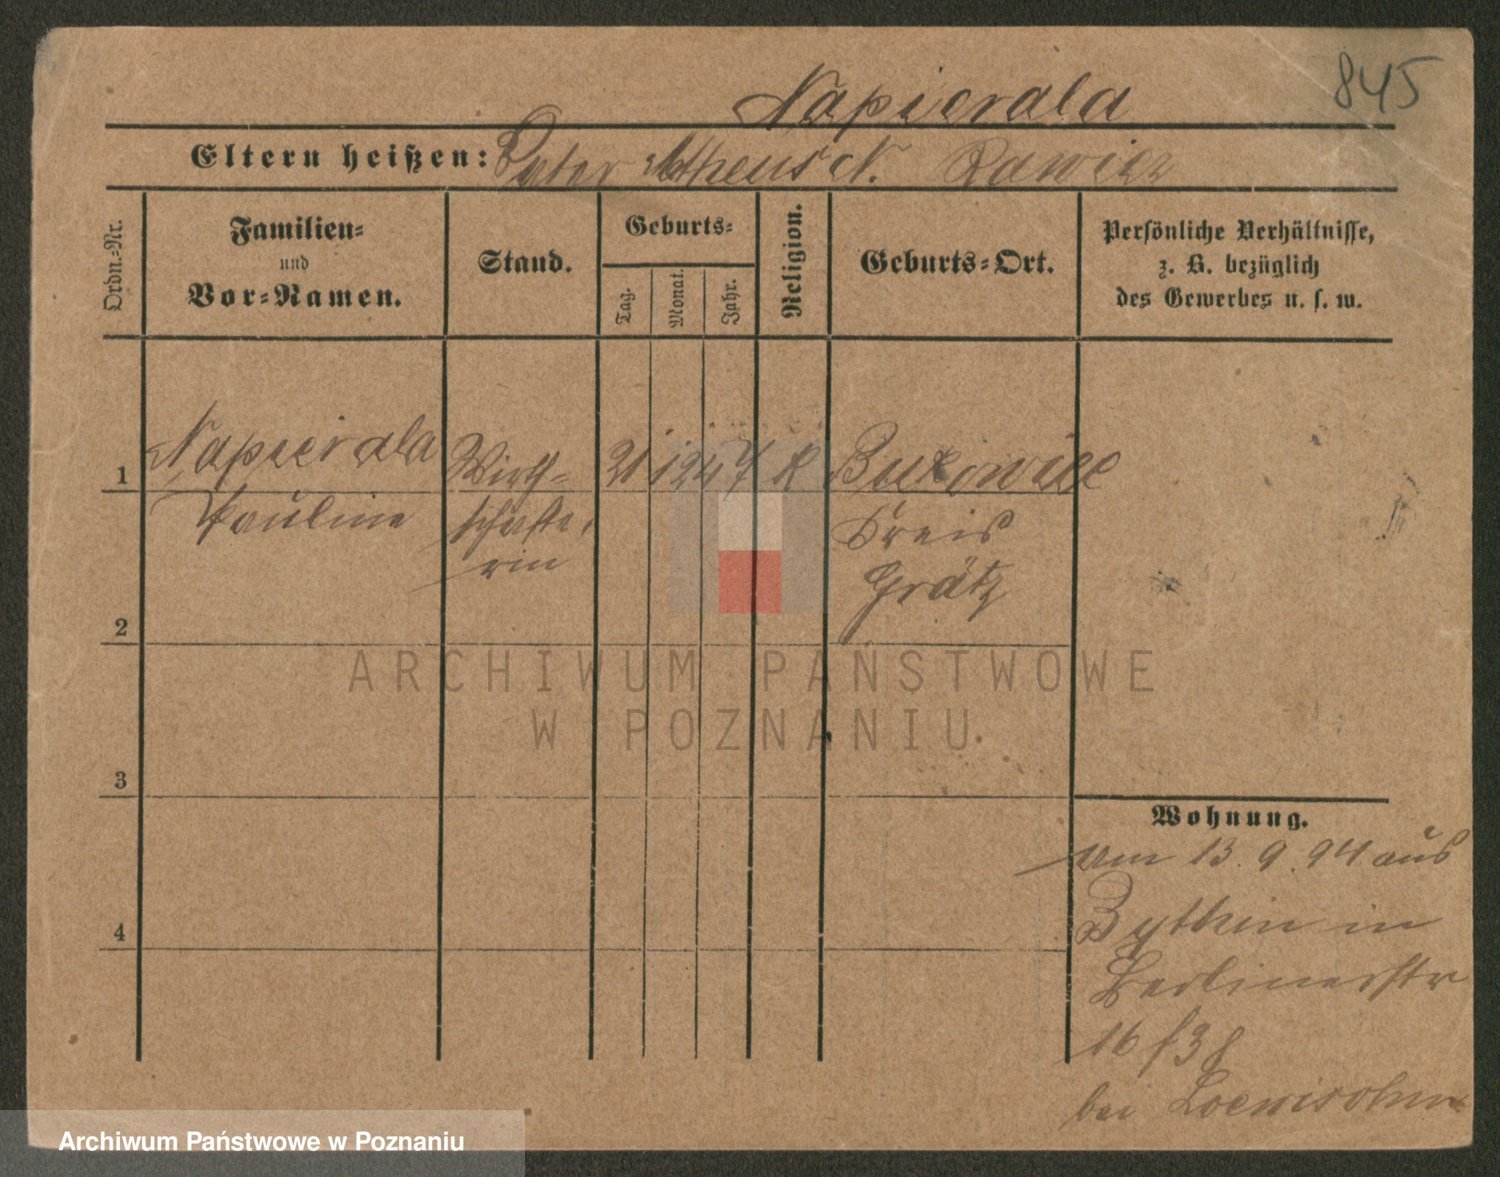 845
Napierala
Eltern heißen: Peter N. Rawicz
Ordn.-Nr.
Familien-
und
Vor-Namen.
Stand.
Geburts-
Tag.
Monat.
Jahr.
Religion.
Geburts-Ort.
Persönliche Verhältnisse,
z. B. bezüglich
des Gewerbes u. s. w.
1 Napierala Wirth- 21 12 47 K Bukowiec
Pauline schafte- Kreis
rin Grätz
2
3
4
ARCHIWUM PAŃSTWOWE
W POZNANIU
Wohnung.
Am 13. 9. 94 aus
Bythin in
Berlinerstr
16
bei Loewisohn
Archiwum Państwowe w Poznaniu